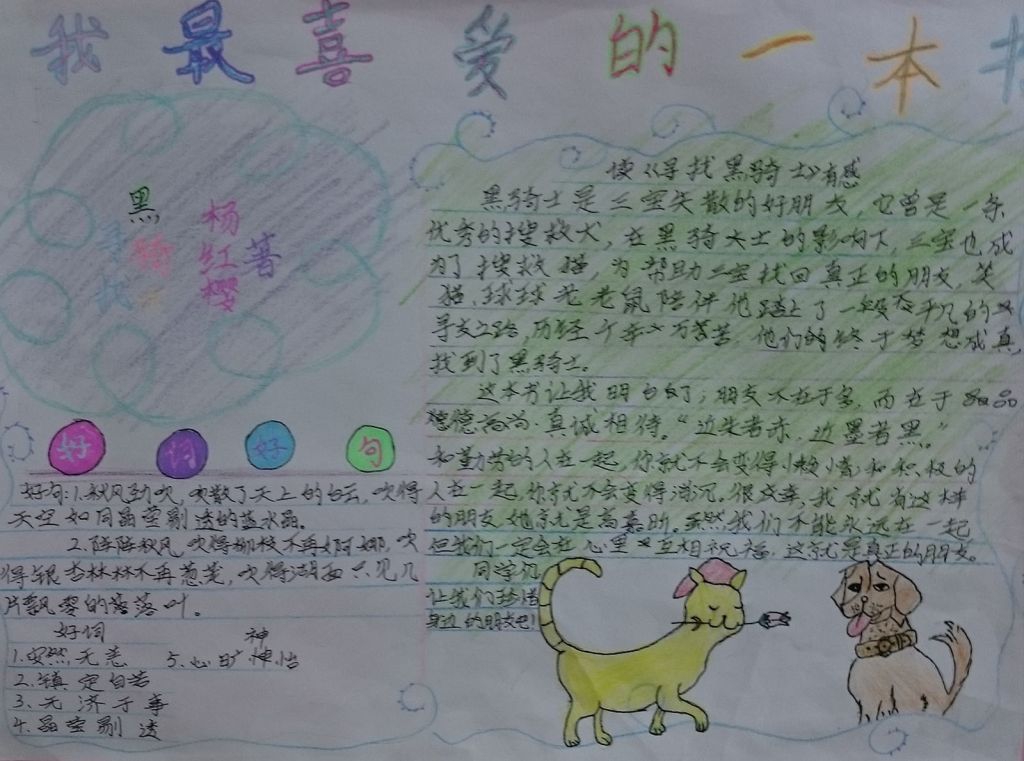 我最喜爱的一本书
寻找
黑骑士
杨红樱
著
好词好句
好句:1.秋风劲吹,吹散了天上的白云,吹得
天空如同晶莹剔透的蓝水晶。
2.阵阵秋风,吹得柳枝不再婀娜,吹
得银杏林林不再葱茏,吹得湖面只见几
片飘零的落落叶。
好词
1.安然无恙
5.心旷神怡
神
2.镇定自若
3.无济于事
4.晶莹剔透
读《寻找黑骑士》有感
黑骑士是三宝失散的好朋友,它曾是一条
优秀的搜救犬,在黑骑大士的影响下,三宝也成
为了搜救猫,为帮助三宝找回真正的朋友,笑
猫、球球老老鼠陪伴他踏上了一段不平凡的
寻友之路,历经千辛万苦苦,他们的终于梦想成真,
找到了黑骑士。
这本书让我明白的了,朋友不在于多,而在于品
德德高尚·真诚相待。“近朱者赤,近墨者黑。”
和勤劳的人在一起,你就不会变得小懒惰和积极的
人在一起,你就不会变得消沉。很庆幸,我就有这样
的朋友,她就是高嘉昕。虽然我们不能永远在一起
但我们一定会在心里互相祝福,这就是真正的朋友。
同学们
让我们珍惜
身边的朋友吧!